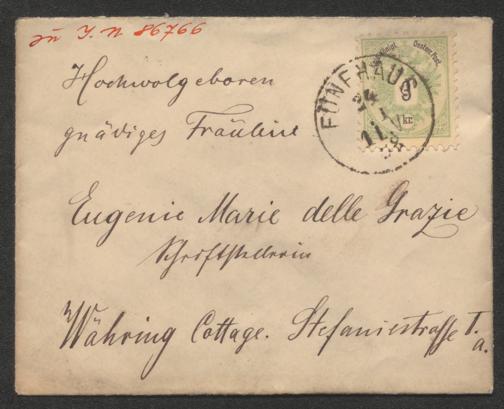 zu I. N 86766
Hochwolgeboren
gnädiges Fräulein
Eugenie Marie delle Grazie
Schriftstellerin
Währing Cottage. Stefaniestrasse 1.
a.
FÜNFHAUS
24
1
11.V
kr.